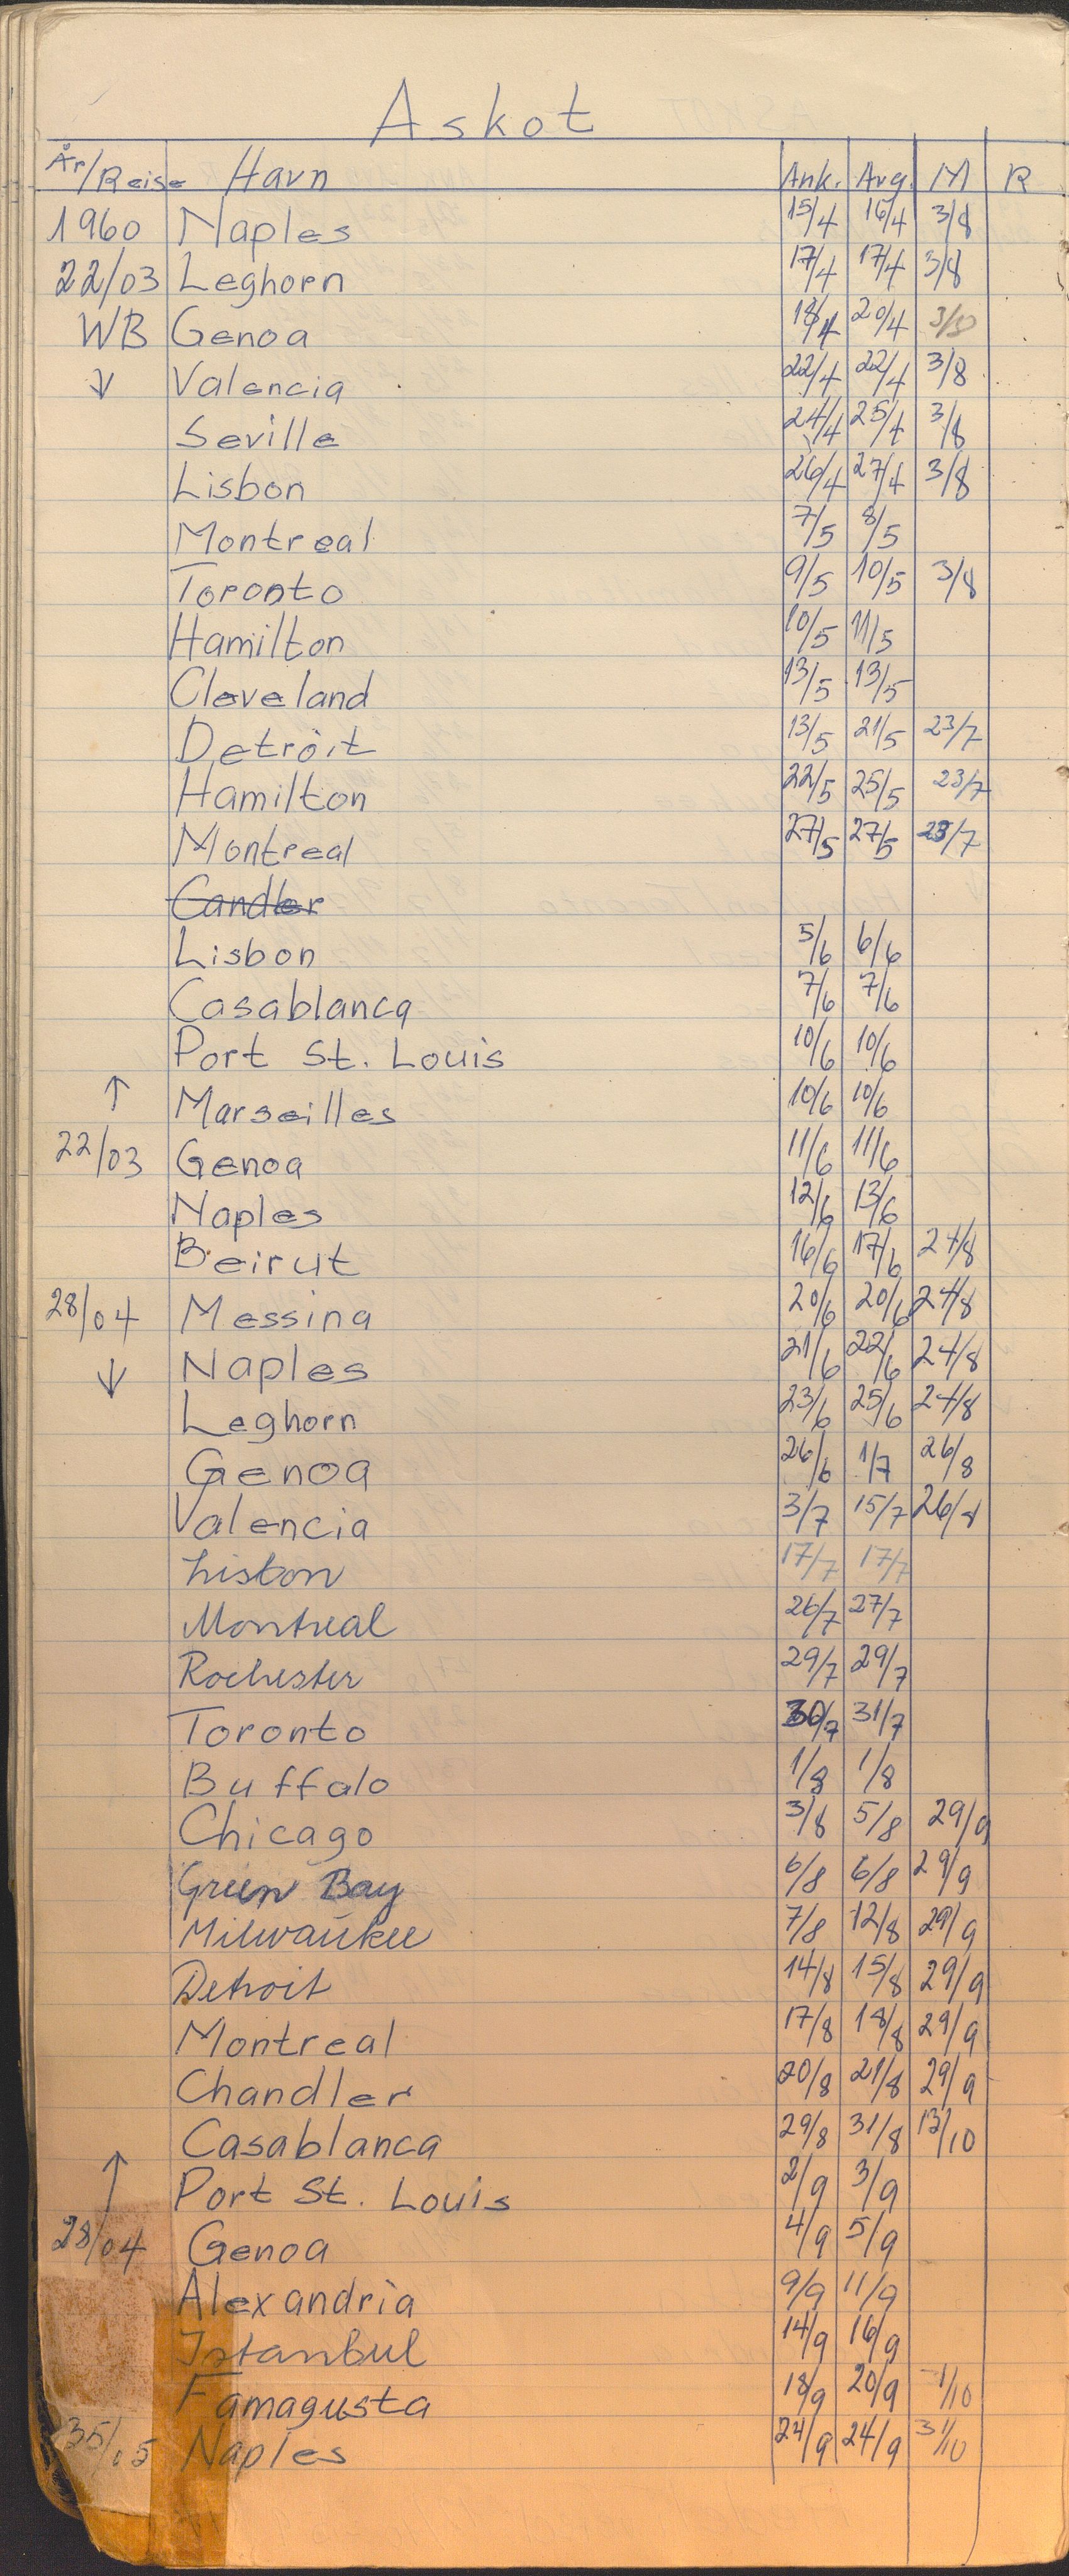 Askot
År/Reise Havn Ank. Avg. M R
1960 Naples 15/4 16/4 3/8
22/03 Leghorn 17/4 17/4 3/8
WB Genoa 18/4 20/4 3/8
↓ Valencia 22/4 22/4 3/8
Seville 24/4 25/4 3/8
Lisbon 26/4 27/4 3/8
Montreal 7/5 8/5
Toronto 9/5 10/5 3/8
Hamilton 10/5 11/5
Cleveland 13/5 13/5
Detroit 13/5 21/5 23/7
Hamilton 22/5 25/5 23/7
Montreal 27/5 27/5 23/7
Candler
Lisbon 5/6 6/6
Casablanca 7/6 7/6
Port St. Louis 10/6 10/6
↑ Marseilles 10/6 10/6
22/03 Genoa 11/6 11/6
Naples 12/6 13/6
Beirut 16/6 17/6 24/8
28/04 Messina 20/6 20/6 24/8
↓ Naples 21/6 22/6 24/8
Leghorn 23/6 25/6 24/8
Genoa 26/6 1/7 26/8
Valencia 3/7 15/7 26/8
Lisbon 17/7 17/7
Montreal 26/7 27/7
Rochester 29/7 29/7
Toronto 30/7 31/7
Buffalo 1/8 1/8
Chicago 3/8 5/8 29/9
Green Bay 6/8 6/8 29/9
Milwaukee 7/8 12/8 29/9
Detroit 14/8 15/8 29/9
Montreal 17/8 18/8 29/9
Chandler 20/8 21/8 29/9
Casablanca 29/8 31/8 13/10
↑ Port St. Louis 2/9 3/9
28/04 Genoa 4/9 5/9
Alexandria 9/9 11/9
Istanbul 14/9 16/9
Famagusta 18/9 20/9 1/10
35/05 Naples 24/9 24/9 31/10